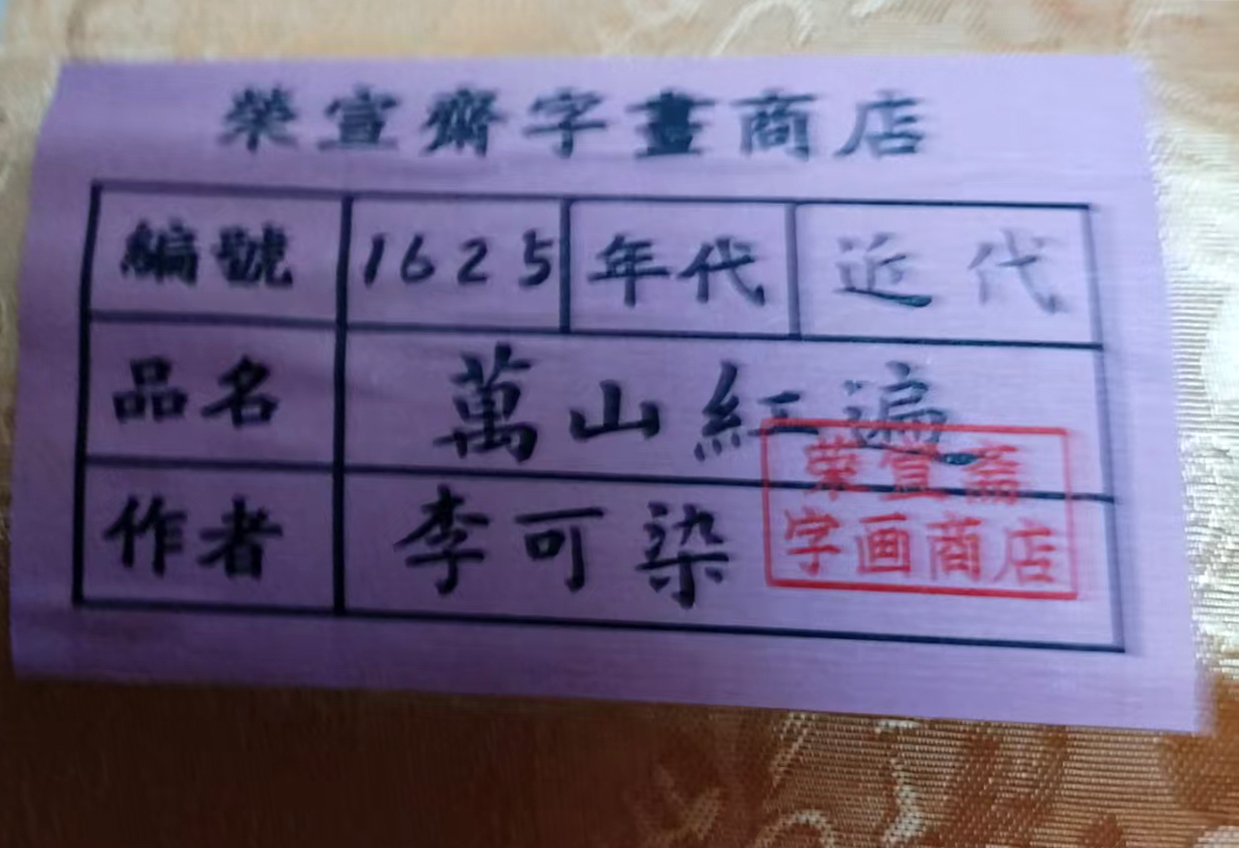 榮宣齋字畫商店
編號 1625 年代 近代
品名 萬山紅遍
作者 李可染
荣宣斋
字画商店